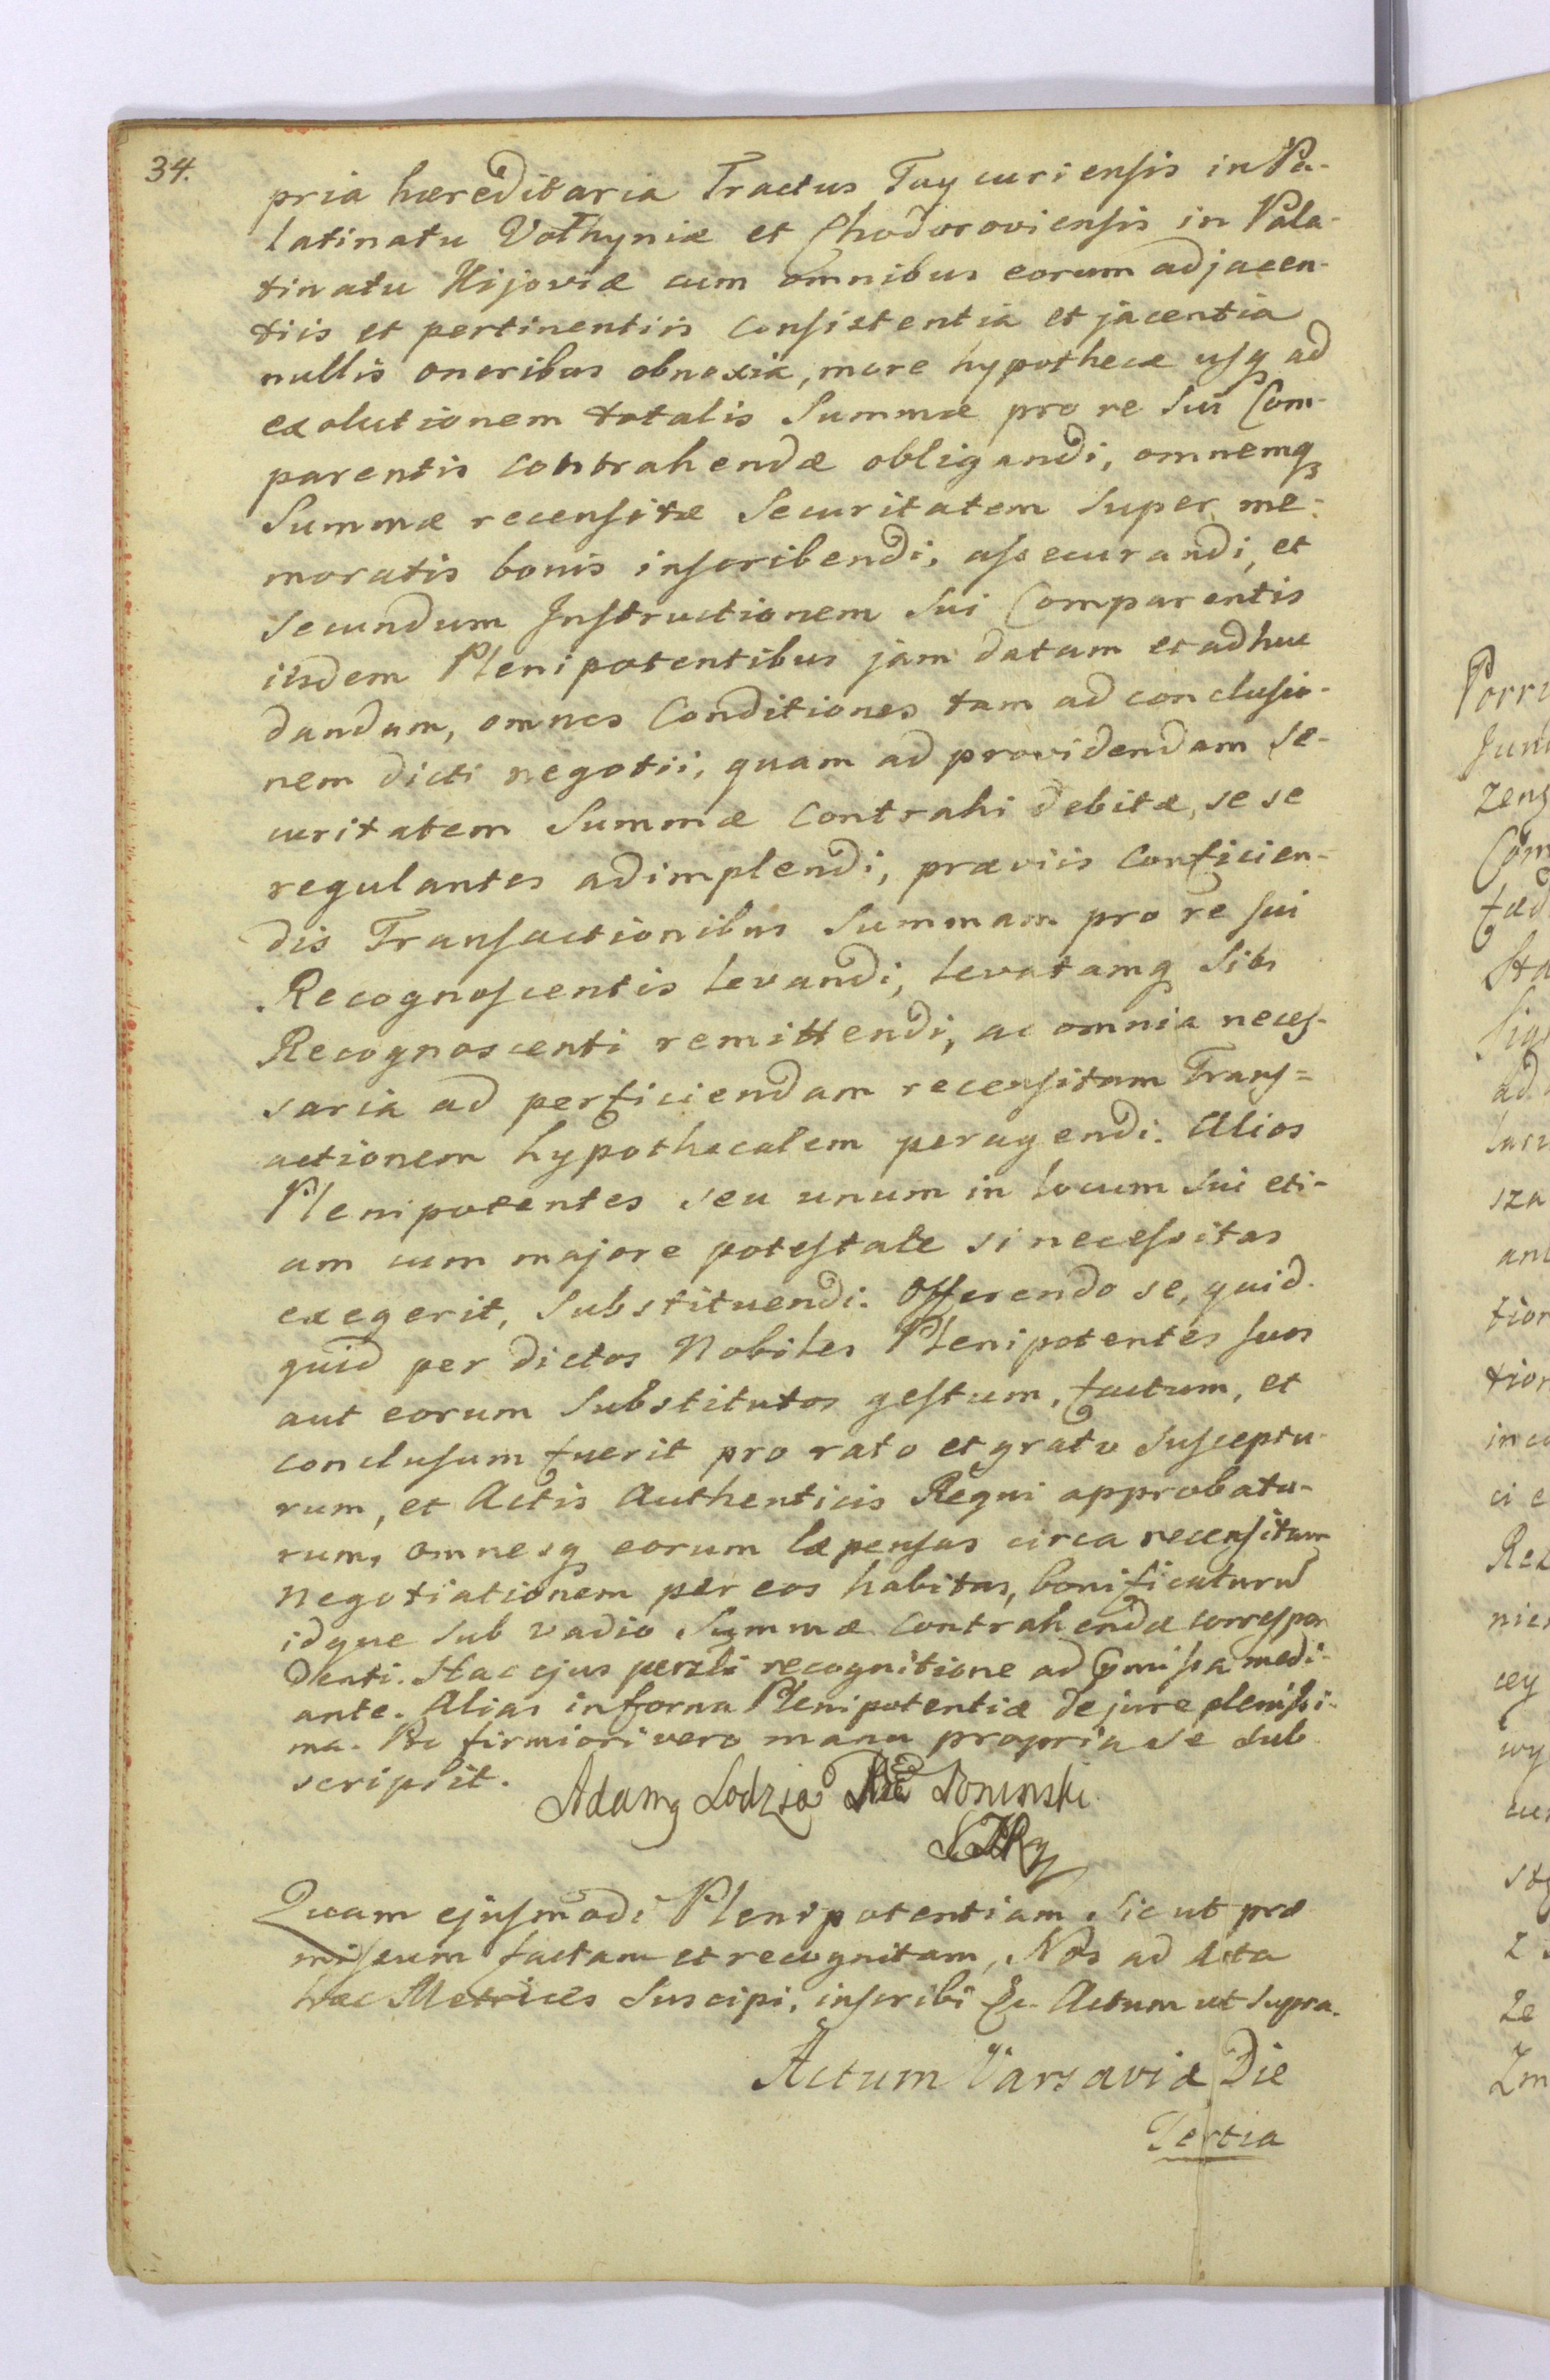 34.
pria hæreditaria Tractus Taycuriensis in Pa-
latinatu Volhyniæ et Chodoroviensis in Pala-
tinatu Kijoviæ cum omnibus eorum adjacen-
tiis et pertinentiis Consistentia et jacentia
nullis oneribus obnoxia, more hypothecæ usq ad
exolutionem totalis Summæ pro re Sui Com-
parentis contrahendæ obligandi, omnemq
Summæ recensitæ Securitatem super me-
moratis bonis inscribendi, assecurandi, et
secundum Instructionem Sui Comparentis
iisdem Plenipotentibus jam datam et adhuc
dandam, omnes Conditiones tam ad conclusio-
nem dicti negotii, quam ad providendam Se-
curitatem Summæ Contrahi debitæ, se se
regulantes adimplendi, præviis Conficien-
dis Transactionibus Summam pro re sui
Recognoscentis levandi, levatamq Sibi
Recognoscenti remittendi, ac omnia neces-
saria ad perficiendam recensitam Trans=
actionem hypothecalem peragendi. Alios
Plenipotentes seu unum in locum Sui eti-
am cum majore potestate si necessitas
exegerit, Substituendi. Offerendo se, quid-
quid per dictos Nobiles Plenipotentes suos
aut eorum Substitutos gestum, factum, et
conclusum fuerit pro rato et grato Susceptu-
rum, et Actis Authenticis Regni approbatu-
rum, omnesq eorum Expensas circa recensitam
negotiationem per eos habitas, bonificaturu
idque Sub vadio Summæ Contrahendæ correspon
denti. Hac ejus recognitione ad medi-
ante. Alias in forma Plenipotentiæ de jure plenissi-
ma. Pro firmiori vero manu propria se sub
scripsit.
Adamq Lodzia Poninski
Quam ejusmodi Plenipotentiam Sic ut præ
missum factam et recognitam, Nos ad Acta
hæc Metrices Suscipi, inscribi &c. Actum ut Supra.
Actum Varsaviæ Die
Tertia